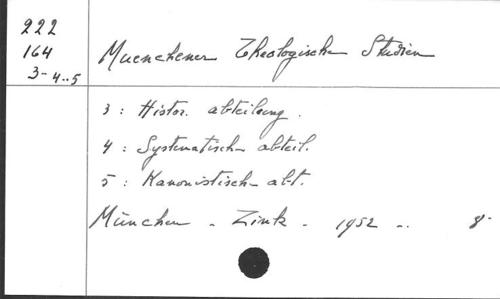 222
164
3-4..5
Muenchener Theologische Studien
3 : Histor. abteilung.
4 : Systematisch abteil.
5 : Kanonistisch abt.
München - Zink - 1952 .. 8°